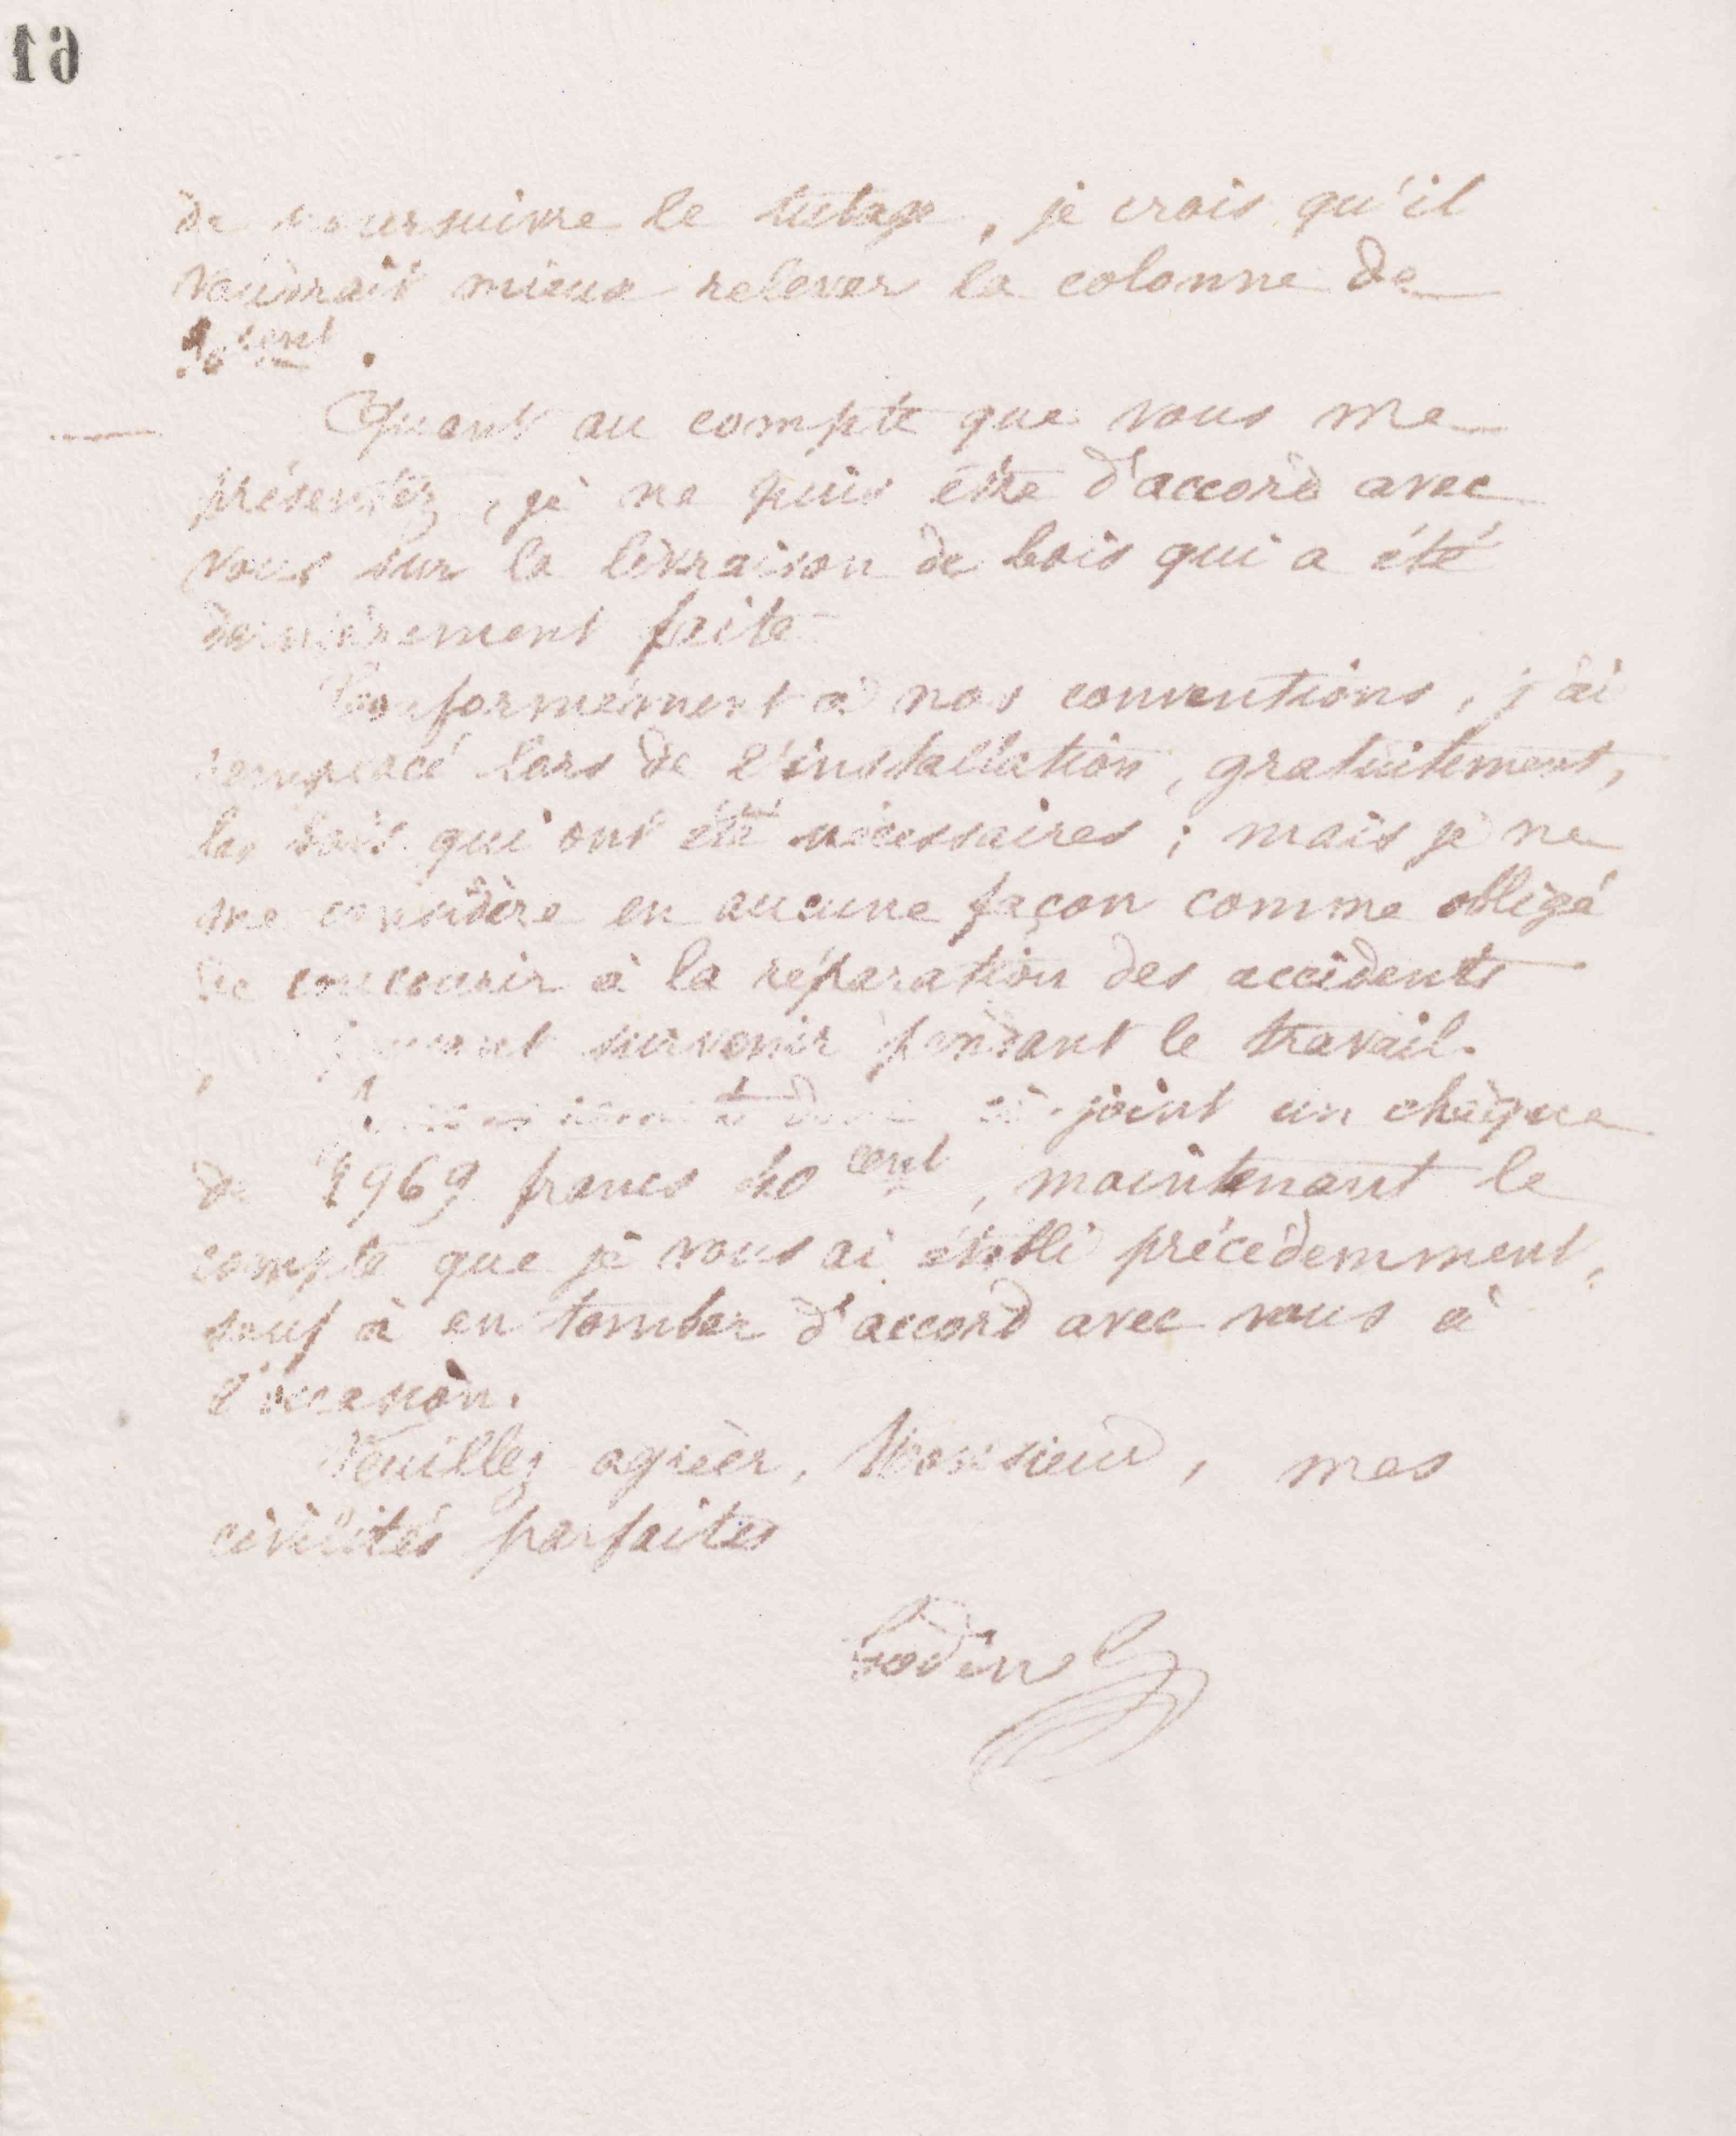 61
de poursuivre le tubage, je crois qu'il
vaudrait mieux relever la colonne de
cent.
Quant au compte que vous me
présentez, je ne puis être d'accord avec
vous sur la livraison de bois qui a été
dernièrement faite
Conformément à nos conventions, j'ai
remplacé lors de l'installation, gratuitement,
les bois qui ont été nécessaires ; mais je ne
me considère en aucune façon comme obligé
de concourir à la réparation des accidents
survenir pendant le travail.
ci-joint un chèque
de 1969 francs 40 cent, maintenant le
compte que je vous ai établi précédemment,
sauf à en tomber d'accord avec vous à
l'occasion.
Veuillez agréer, Monsieur, mes
civilités parfaites
Godin